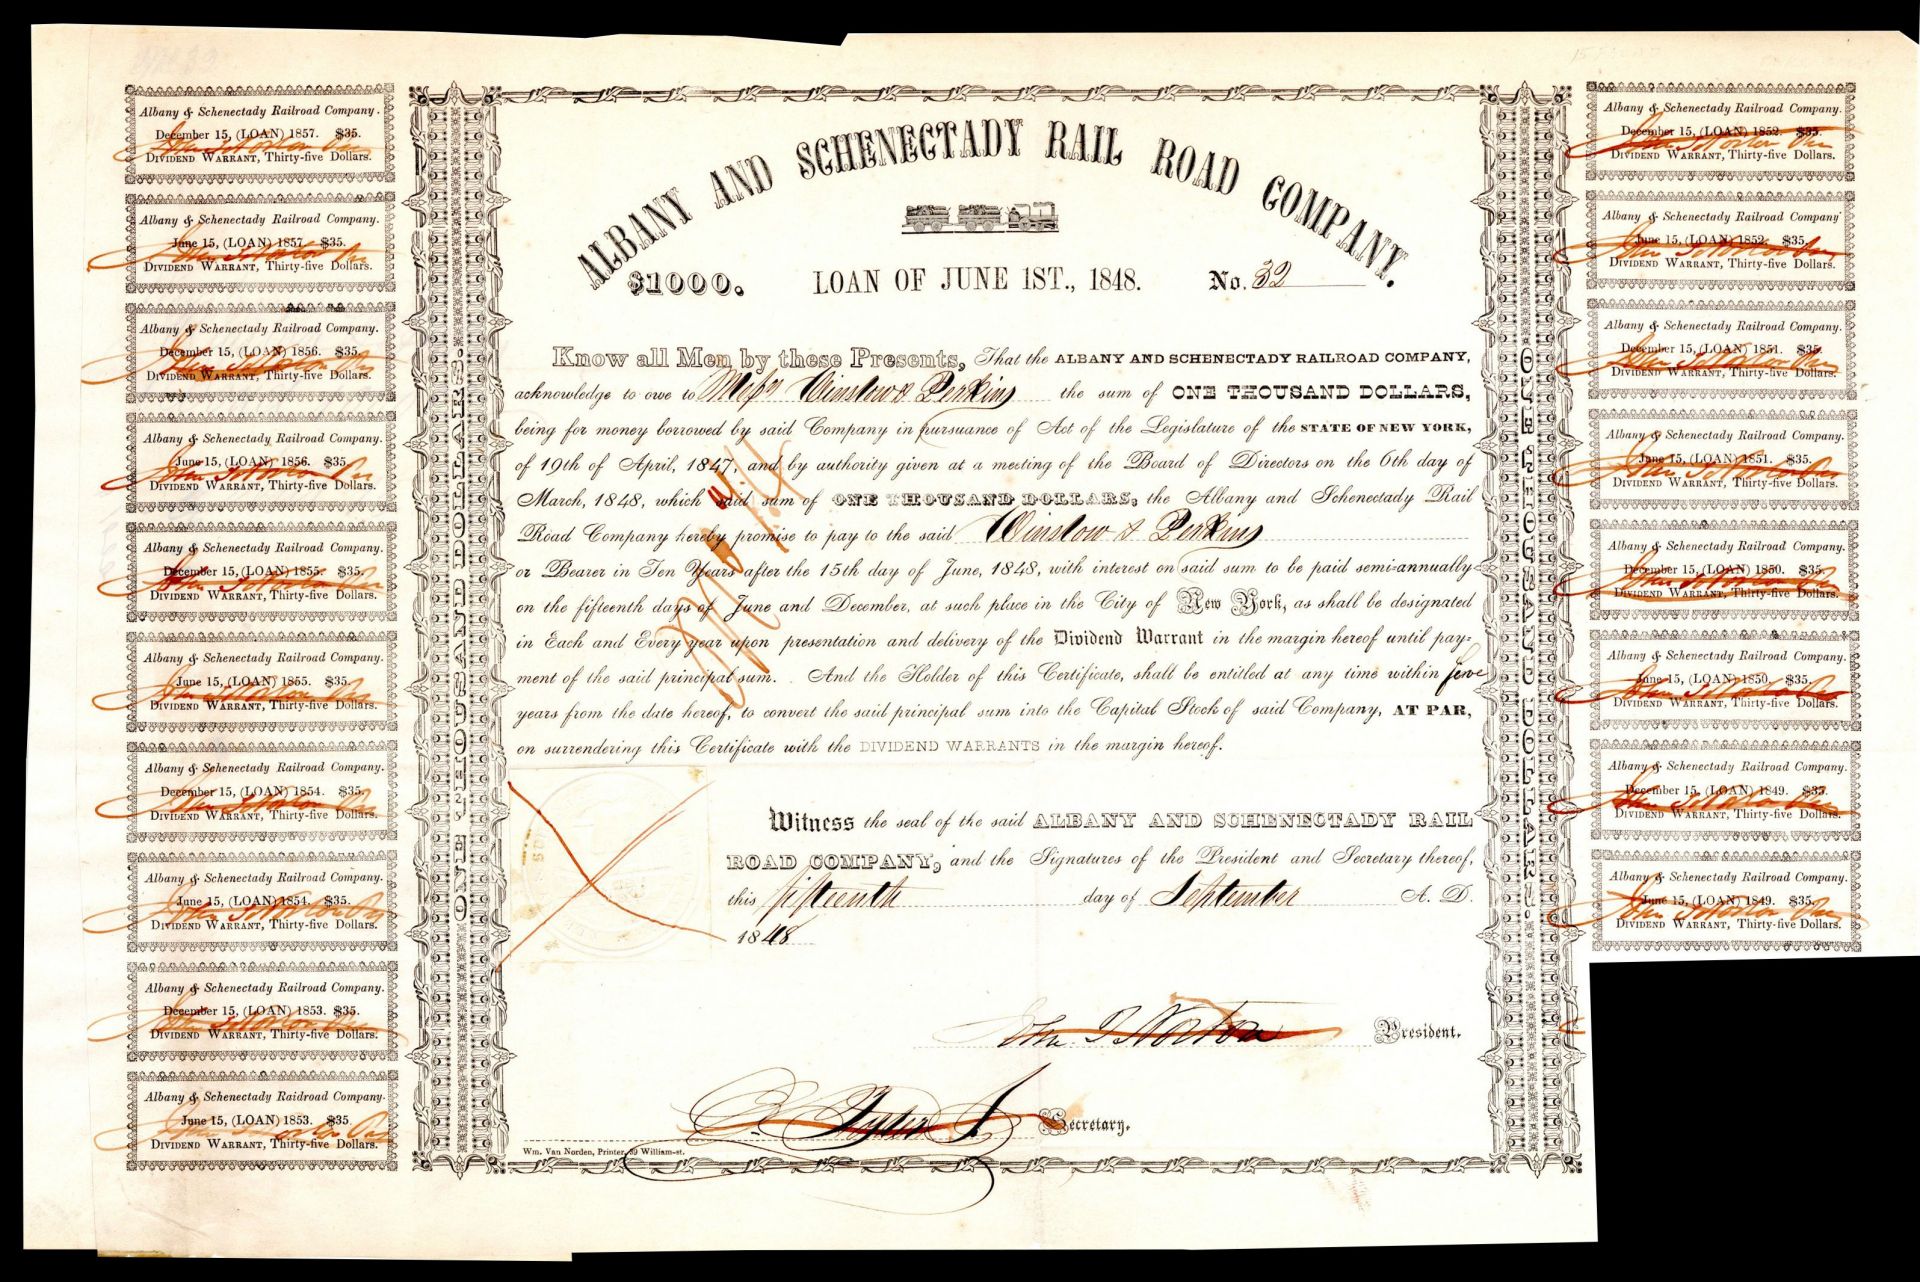 Albany & Schenectady Railroad Company.
December 15, (LOAN) 1857. $35.
DIVIDEND WARRANT, Thirty-five Dollars.
Albany & Schenectady Railroad Company.
June 15, (LOAN) 1857. $35.
DIVIDEND WARRANT, Thirty-five Dollars.
Albany & Schenectady Railroad Company.
December 15, (LOAN) 1856. $35.
DIVIDEND WARRANT, Thirty-five Dollars.
Albany & Schenectady Railroad Company.
June 15, (LOAN) 1856. $35.
DIVIDEND WARRANT, Thirty-five Dollars.
Albany & Schenectady Railroad Company.
December 15, (LOAN) 1855. $35.
DIVIDEND WARRANT, Thirty-five Dollars.
Albany & Schenectady Railroad Company.
June 15, (LOAN) 1855. $35.
DIVIDEND WARRANT, Thirty-five Dollars.
Albany & Schenectady Railroad Company.
December 15, (LOAN) 1854. $35.
DIVIDEND WARRANT, Thirty-five Dollars.
Albany & Schenectady Railroad Company.
June 15, (LOAN) 1854. $35.
DIVIDEND WARRANT, Thirty-five Dollars.
Albany & Schenectady Railroad Company.
December 15, (LOAN) 1853. $35.
DIVIDEND WARRANT, Thirty-five Dollars.
Albany & Schenectady Raidroad Company.
June 15, (LOAN) 1853. $35
DIVIDEND WARRANT, Thirty-five Dollars.
ONE THOUSAND DOLLARS.
ALBANY AND SCHENECTADY RAIL ROAD COMPANY.
$1000. LOAN OF JUNE 1ST., 1848. No. 32
Know all Men by these Presents, That the ALBANY AND SCHENECTADY RAILROAD COMPANY,
acknowledge to owe to Messrs Winslow & Perkins the sum of ONE THOUSAND DOLLARS,
being for money borrowed by said Company in pursuance of Act of the Legislature of the STATE OF NEW YORK,
of 19th of April, 1847, and by authority given at a meeting of the Board of Directors on the 6th day of
March, 1848, which said sum of ONE THOUSAND DOLLARS, the Albany and Schenectady Rail
Road Company hereby promise to pay to the said Winslow & Perkins
or Bearer in Ten Years after the 15th day of June, 1848, with interest on said sum to be paid semi-annually
on the fifteenth days of June and December, at such place in the City of New York, as shall be designated
in Each and Every year upon presentation and delivery of the Dividend Warrant in the margin hereof until pay-
ment of the said principal sum. And the Holder of this Certificate, shall be entitled at any time within five
years from the date hereof, to convert the said principal sum into the Capital Stock of said Company, AT PAR,
on surrendering this Certificate with the DIVIDEND WARRANTS in the margin hereof.
Witness the seal of the said ALBANY AND SCHENECTADY RAIL
ROAD COMPANY, and the Signatures of the President and Secretary thereof,
this fifteenth day of September A. D.
1848
John T Norton President.
Secretary.
Wm. Van Norden, Printer, 39 William-st.
ONE THOUSAND DOLLARS.
Albany & Schenectady Railroad Company.
December 15, (LOAN) 1852. $35.
DIVIDEND WARRANT, Thirty-five Dollars.
Albany & Schenectady Railroad Company
June 15, (LOAN) 1852. $35.
DIVIDEND WARRANT, Thirty-five Dollars.
Albany & Schenectady Railroad Company.
December 15, (LOAN) 1851. $35.
DIVIDEND WARRANT, Thirty-five Dollars.
Albany & Schenectady Railroad Company.
June 15, (LOAN) 1851. $35.
DIVIDEND WARRANT, Thirty-five Dollars.
Albany & Schenectady Railroad Company.
December 15, (LOAN) 1850. $35.
DIVIDEND WARRANT, Thirty-five Dollars.
Albany & Schenectady Railroad Company.
June 15, (LOAN) 1850. $35.
DIVIDEND WARRANT, Thirty-five Dollars.
Albany & Schenectady Railroad Company.
December 15, (LOAN) 1849. $35.
DIVIDEND WARRANT, Thirty-five Dollars.
Albany & Schenectady Railroad Company.
June 15, (LOAN) 1849. $35.
DIVIDEND WARRANT, Thirty-five Dollars.